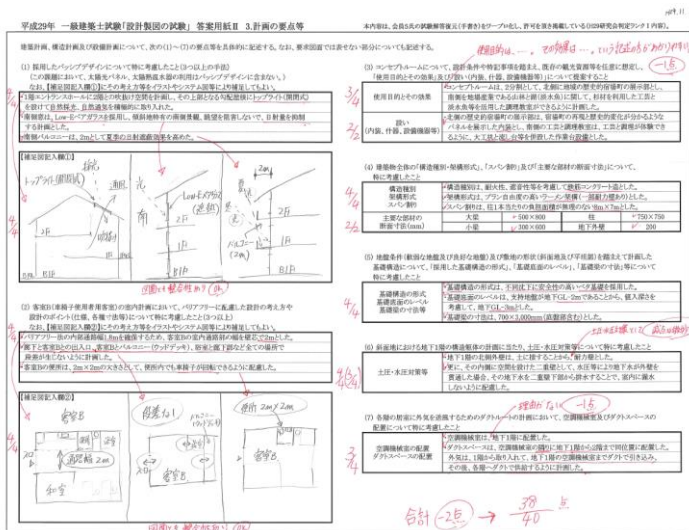 平成29年 一級建築士試験「設計製図の試験」 答案用紙Ⅱ 3.計画の要点等
建築計画、構造計画及び設備計画について、次の(1)～(7)の要点等を具体的に記述する。なお、要求図面では表せない部分についても記述する。
(1) 採用したパッシブデザインについて特に考慮したこと(3つ以上の手法)
(この課題において、太陽光パネル、太陽熱温水器の利用はパッシブデザインに含まない。)
なお、【補足図記入欄①】にその考え方等をイラストやシステム図等により補足してもよい。
4/4
・1階エントランスホールに2階との吹抜け空間を計画し、その上部となる勾配屋根にトップライト(開閉式)
を設けて自然採光、自然通風を積極的に取り入れた。
・南側窓は、Low-Eペアガラスを採用し、傾斜地特有の南側景観、眺望を阻害しないで、日射量を抑制
する計画とした。
・南側バルコニーは、2mとして夏季の日射遮蔽効果を高めた。
【補足図記入欄①】
4/4
トップライト(開閉式)
採光
通風
吹抜け
2F
1F
B1F
光
南
Low-Eペアガラス
2F
1F
B1F
2m
バルコニー
2F
1F
B1F
図面とも整合性あり (OK)
(2) 客室B(車椅子使用者用客室)の室内計画において、バリアフリーに配慮した設計の考え方や
設計のポイント(仕様、各種寸法等)について特に考慮したこと(3つ以上)
なお、【補足図記入欄②】にその考え方等をイラストやシステム図等により補足してもよい。
4/4
・バリアフリー法の内部通路幅1.8mを確保するため、客室Bの室内通路部の幅を壁芯で2mとした。
・廊下と客室Bとの出入口、客室Bとバルコニー(ウッドデッキ)、浴室と廊下部など全ての場所で
段差が生じないように計画した。
・客室Bの便所は、2m×2mの大きさとして、便所内でも車椅子が回転できるように配慮した。
【補足図記入欄②】
4/4
客室B
通路幅2m
和室
段差なし
客室B
便所 2m×2m
客室B
図面とも整合性あり (OK)
本内容は、会員S氏の試験解答復元(手書き)をワープロ化し、許可を頂き掲載している(H29研究会判定ランクⅠ内容)。
使用目的は…。その効果は…。という記述の方がわかりやすい
(3) コンセプトルームについて、設計条件や特記事項を踏まえ、既存の観光資源等を任意に想定し、
「使用目的とその効果」及び「設い(内装、什器、設備機器等)」について提案すること
-1点
3/4
使用目的とその効果
・コンセプトルームは、2分割として、北側に地域の歴史的宿場町の展示部とし、
南側を地場産業である山林と湖(淡水魚)に関して、杉材を利用した工芸と
淡水魚等を使用した調理教室ができるように計画した。
2/2
設い
(内装、什器、設備機器等)
・北側の歴史的宿場町の展示部は、宿場町の再現と歴史的変化が分かるような
パネルを展示した内装とし、南側の工芸と調理教室は、工芸と調理が体験でき
るように、大工技と流し台等を併設した作業台設備とした。
(4) 建築物全体の「構造種別・架構形式」、「スパン割り」及び「主要な部材の断面寸法」について、
特に考慮したこと
4/4
構造種別
架構形式
スパン割り
・構造種別は、耐火性、遮音性等を考慮して鉄筋コンクリート造とした。
・架構形式は、プラン自由度の高いラーメン架構(一部耐力壁あり)とした。
・スパン割りは、柱1本当たりの負担面積が無理のない6m×7mとした。
2/2
主要な部材の
断面寸法(mm)
大梁 500×800 柱 750×750
小梁 300×600 地下外壁 200
(5) 地盤条件(軟弱な地盤及び良好な地盤)及び敷地の形状(斜面地及び平坦部)を踏まえて計画した
基礎構造について、「採用した基礎構造の形式」、「基礎底面のレベル」、「基礎梁の寸法」等について
特に考慮したこと
4/4
基礎構造の形式
基礎底面のレベル
基礎梁の寸法等
・基礎構造の形式は、不同沈下に安全性の高いベタ基礎を採用した。
・基礎底面のレベルは、支持地盤が地下GL-2mであることから、根入深さを
考慮して、地下GL-3mとした。
・基礎梁の寸法は、700×3,000mm(底盤部含む)とした。
(6) 斜面地における地下1階の構造躯体の計画に当たり、土圧・水圧対策等について特に考慮したこと
土圧・水圧対策等
・地下1階の北側外壁は、土に接することから、耐力壁とした。
・更に、その内側に空間を設けた二重壁として、水圧等により地下水が外壁を
貫通した場合、その地下水を二重壁下部から排水することで、室内に漏水
しないように配慮した。
(7) 各階の居室に外気を送風するためのダクトルートの計画において、空調機械室及びダクトスペースの
配置について特に考慮したこと
理由がない
-1点
3/4
空調機械室の配置
ダクトスペースの配置
・空調機械室は、地下1階に配置した。
・ダクトスペースは、空調機械室の隣りに地下1階から2階まで同位置に配置した。
外気は、1階から取り入れて、地下1階の空調機械室までダクトで引き込み、
その後、各階へダクトで供給するように計画した。
合計 -2点 → 38/40 点